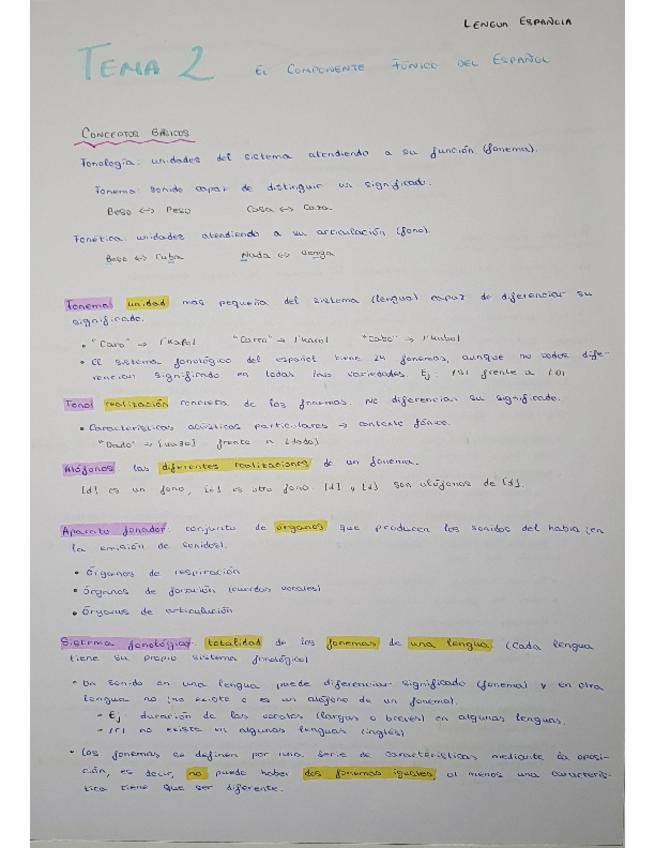 LENGUA ESPAÑOLA
TEMA 2 EL COMPONENTE FÓNICO DEL ESPAÑOL
CONCEPTOS BÁSICOS
Fonología: unidades del sistema atendiendo a su función (fonema).
Fonema: sonido capaz de distinguir un significado.
Beso <-> Peso Casa <-> Cara
Fonética: unidades atendiendo a su articulación (fono).
<-> Cuba Nuda <-> Venga
Fonema: unidad mas pequeña del sistema (lengua) capaz de diferenciar su
significado.
• "Caro" → "Carro" → "Cabo" →
• El sistema fonológico del español tiene 24 fonemas, aunque no todos dife-
rencian significado en todas las variedades. Ej: frente a
Fono: realización concreta de los fonemas. No diferencian su significado.
• Características acústicas particulares → contexto fónico.
"Dado" → frente a
Alófonos: las diferentes realizaciones de un fonema.
[d] es un fono, es otro fono. [d] y son alófonos de
Aparato fonador: conjunto de órganos que producen los sonidos del habla (en
la emisión de sonidos).
• Órganos de respiración
• Órganos de fonación (cuerdas vocales)
• Órganos de articulación
Sistema fonológico: totalidad de los fonemas de una lengua (Cada lengua
tiene su propio sistema fonológico)
• Un sonido en una lengua puede diferenciar significado (fonema) y en otra
lengua no (no existe o es un alófono de un fonema).
- Ej: duración de las vocales (largas o breves) en algunas lenguas.
- no existe en algunas lenguas (inglés)
• Los fonemas se definen por una serie de características mediante la oposi-
ción, es decir, no puede haber dos fonemas iguales, al menos una caracterís-
tica tiene que ser diferente.